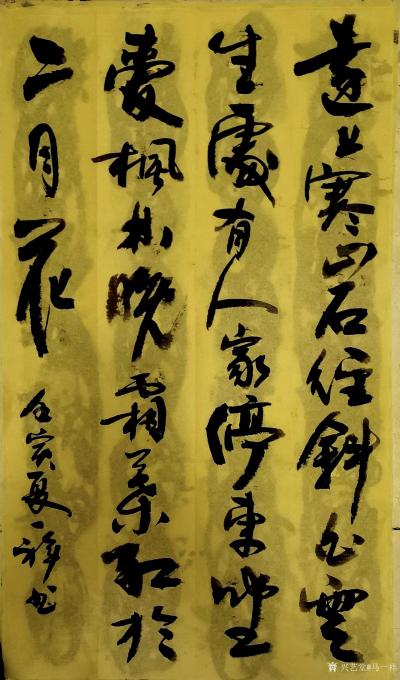 遠上寒山石徑斜白雲
生處有人家停車坐
愛楓林晚霜葉紅於
二月花
壬寅夏一祥书
兴艺堂@马一祥